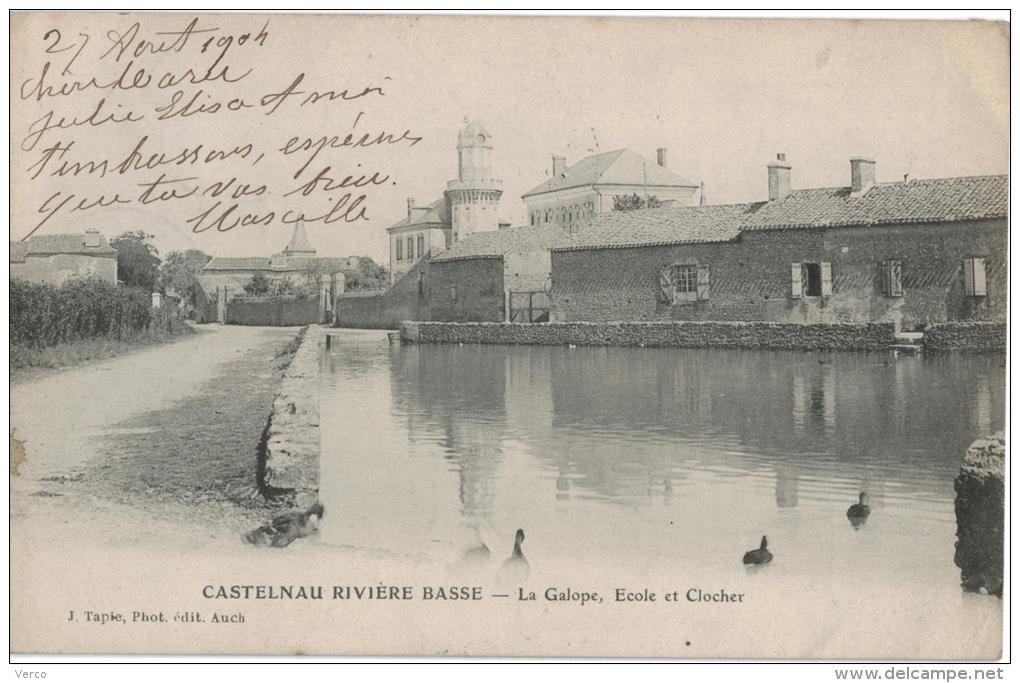 27 Aout 1904
Julie Elisa et moi
t'embrassons, espérons
que tu vas bien.
Marcille
CASTELNAU RIVIÈRE BASSE — La Galope, Ecole et Clocher
J. Tapie, Phot. édit. Auch
Verco
www.delcampe.net